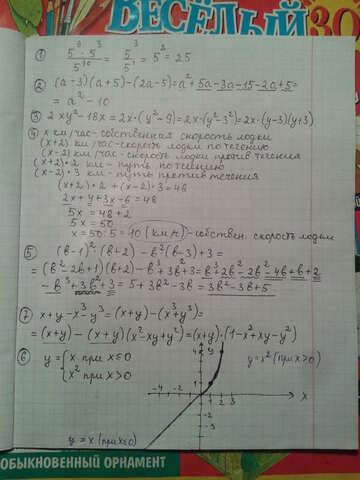 ВЕСЁЛЫЙ ЗО
① (5⁹ · 5³)/5¹⁰ = 5³/5¹ = 5² = 25
② (а-3)(а+5)-(2а-5)=а²+5а-3а-15-2а+5=
= а² - 10
③ 2xy² - 18x = 2x·(y² - 9) = 2x·(y² - 3²) = 2x·(y-3)(y+3)
④ x км/час - собственная скорость лодки
(x+2) км/час - скорость лодки по течению
(x-2) км/час - скорость лодки против течения
(x+2)·2 км - путь по течению
(x-2)·3 км - путь против течения
(x+2)·2 + (x-2)·3 = 48
2x + 4 + 3x - 6 = 48
5x = 48 + 2
5x = 50
x = 50:5 = 10 (км/ч) - собствен. скорость лодки
⑤ (b-1)²(b+2) - b²(b-3) + 3 =
= (b² - 2b + 1)(b+2) - b³ + 3b² + 3 = b³ + 2b² - 2b² - 4b + b + 2
- b³ + 3b² + 3 = 5 + 3b² - 3b = 3b² - 3b + 5
⑦ x + y - x³ - y³ = (x+y) - (x³ + y³) =
= (x+y) - (x+y)(x² - xy + y²) = (x+y)·(1 - x² + xy - y²)
⑥ y = { x при x≤0
x² при x>0
y
4
y = x² (при x>0)
-4 -2 1 2 3 x
-2
-3
y = x (при x≤0)
ОБЫКНОВЕННЫЙ ОРНАМЕНТ